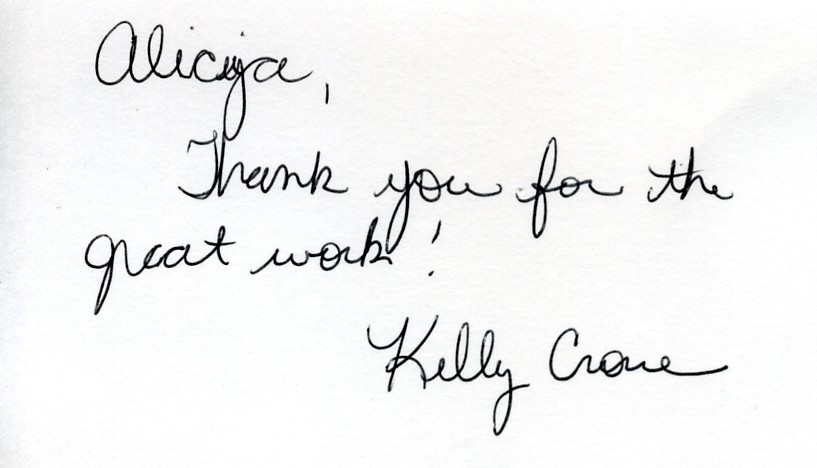 Alicija,
Thank you for the
great work!
Kelly Crone